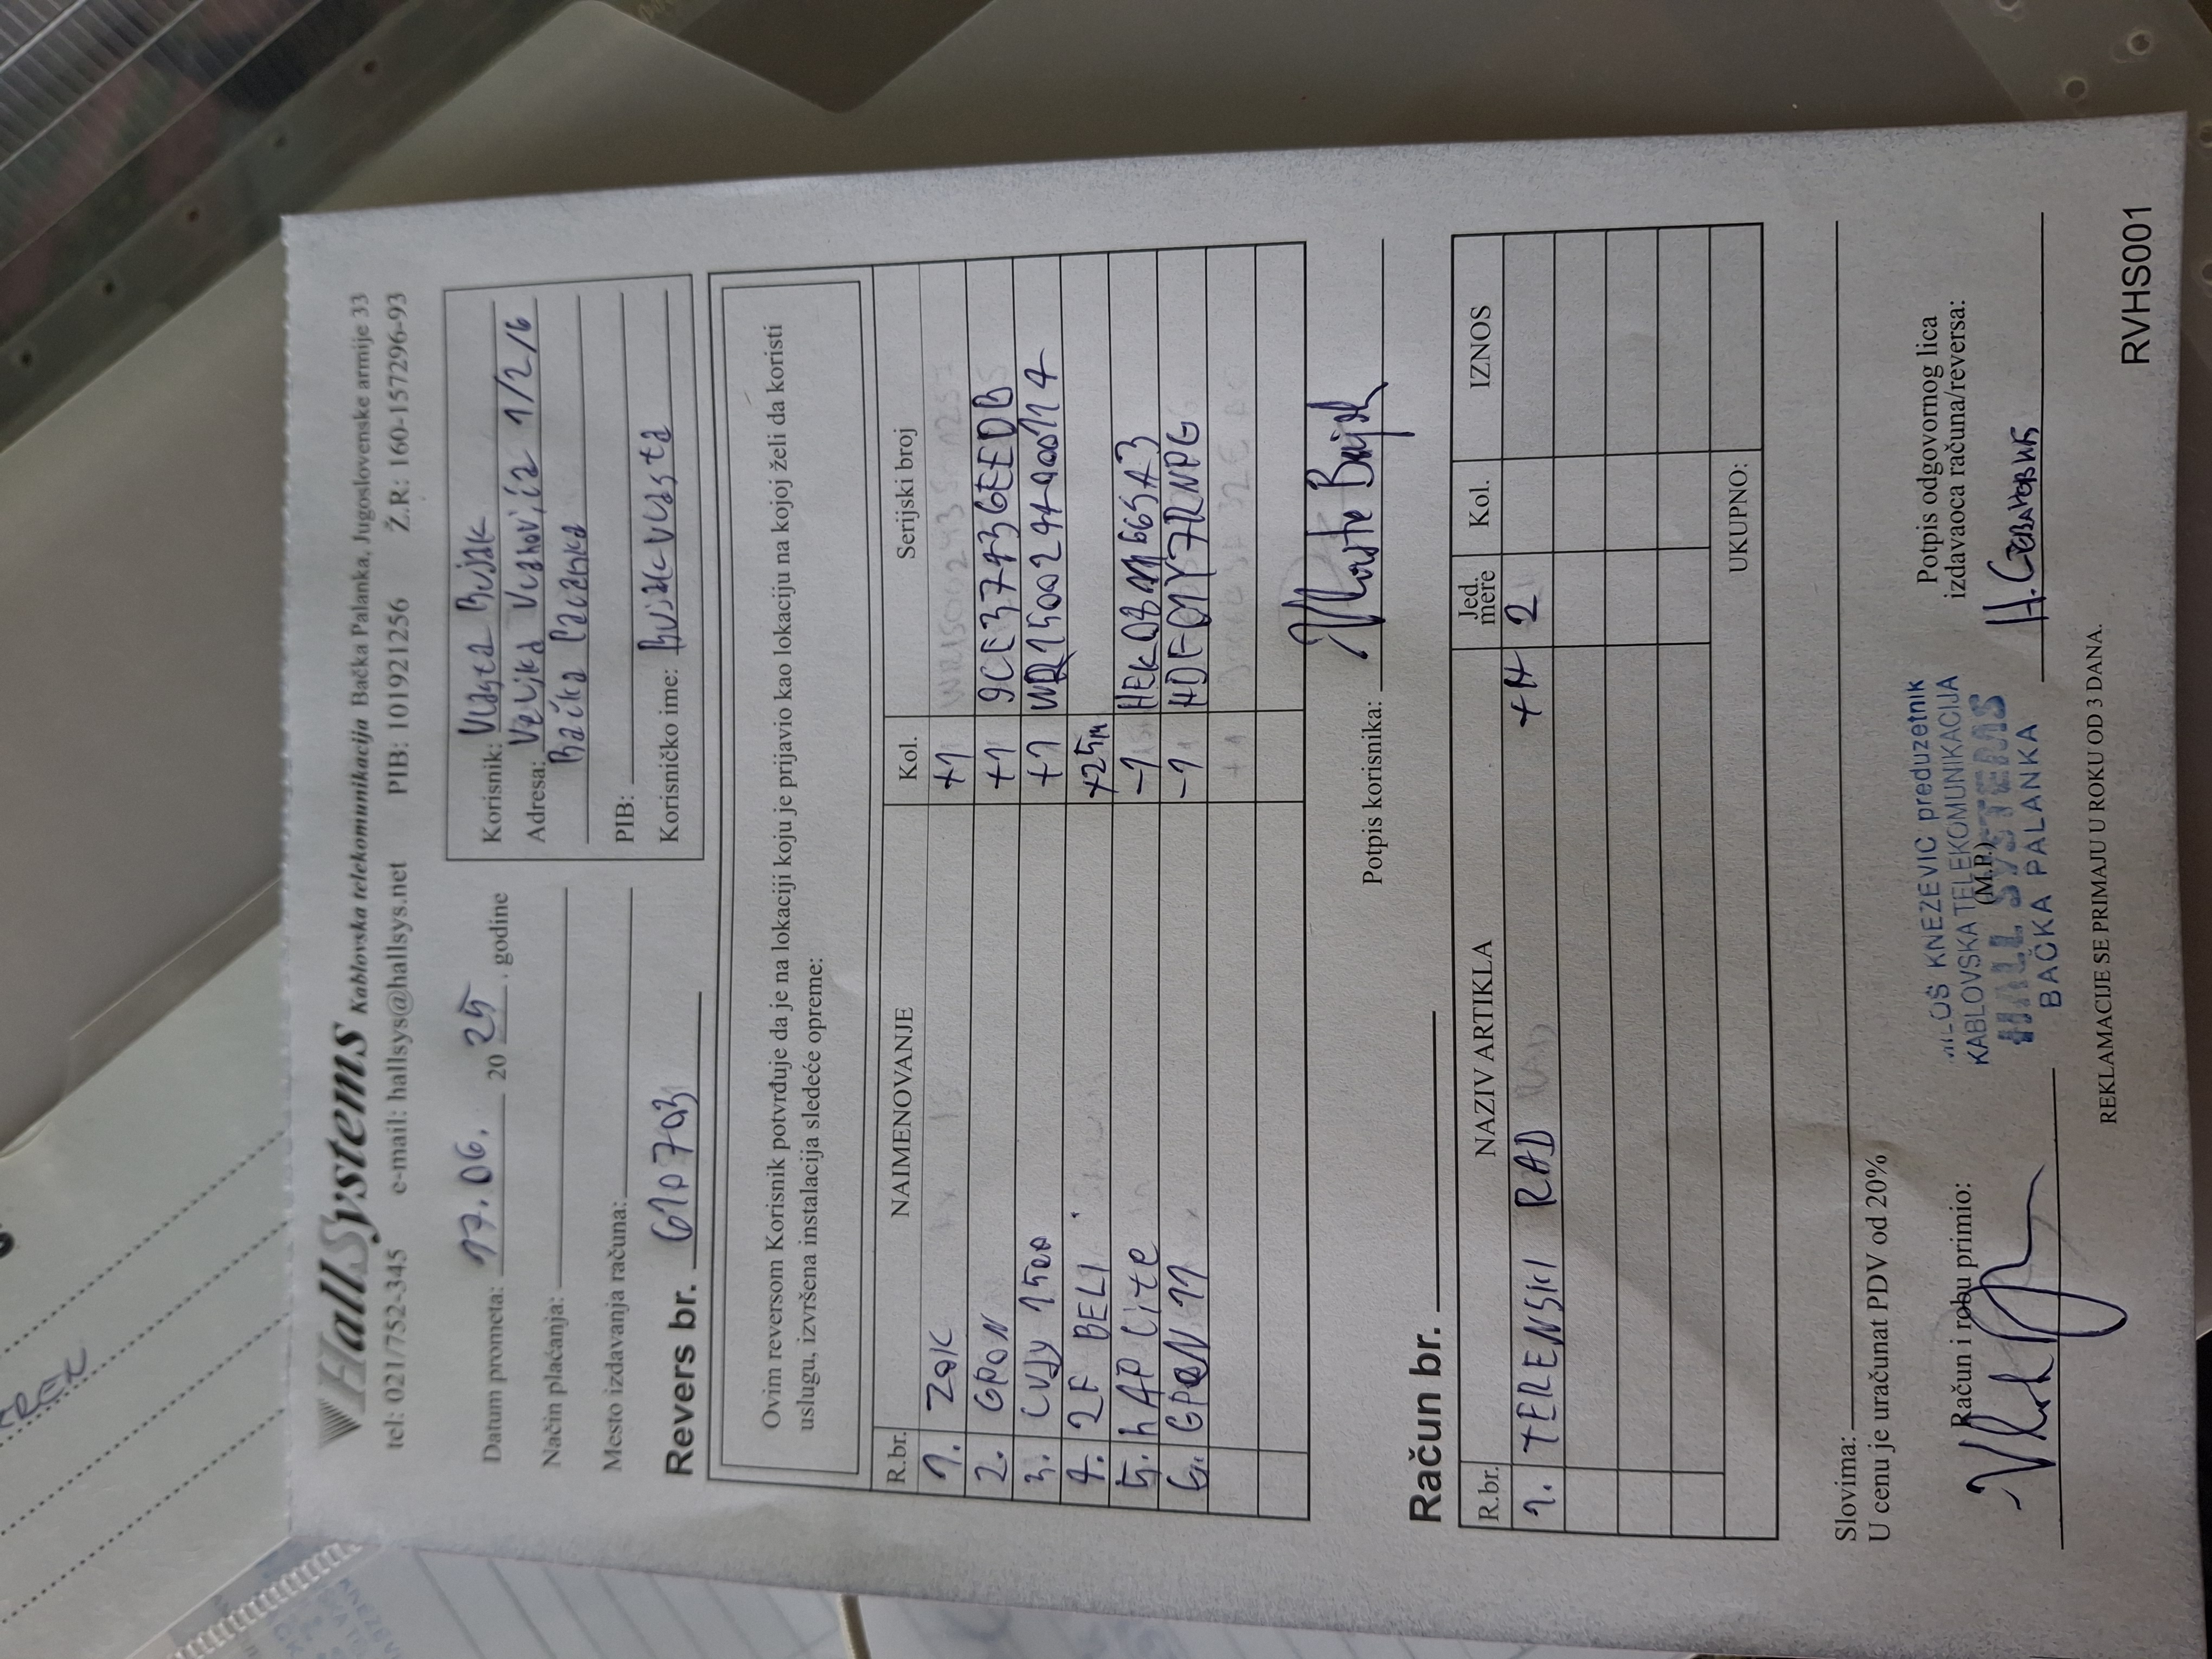 HallSystems Kablovska telekomunikacija Bačka Palanka, Jugoslovenske armije 33
tel: 021/752-345 e-mail: hallsys@hallsys.net PIB: 101921256 Ž.R: 160-157296-93
Datum prometa: 17.06. 20 25. godine
Način plaćanja:
Mesto izdavanja računa:
Korisnik: Vlasta Bujak
Adresa: Veljka Vlahovića 1/2/6
Bačka Palanka
PIB:
Korisničko ime: Bujak Vlasta
Revers br. G10703
Ovim reversom Korisnik potvrđuje da je na lokaciji koju je prijavio kao lokaciju na kojoj želi da koristi
uslugu, izvršena instalacija sledeće opreme:
R.br. NAIMENOVANJE Kol. Serijski broj
1. ZOK +1
2. GPON +1 9CE37436EEDB
3. 1500 +1
4. 2F BELI +25m
5. hAP Lite -1
6. GPON 11 -1
Potpis korisnika: Vlasta Bujak
Račun br.
R.br. NAZIV ARTIKLA Jed. mere Kol. IZNOS
1. TERENSKI RAD 2
UKUPNO:
Slovima:
U cenu je uračunat PDV od 20%
Račun i robu primio:
Potpis odgovornog lica
izdavaoca računa/reversa:
KNEZEVIC preduzetnik
KABLOVSKA TELEKOMUNIKACIJA
(M.P.)
HALL SYSTEMS
BAČKA PALANKA
REKLAMACIJE SE PRIMAJU U ROKU OD 3 DANA.
RVHS001